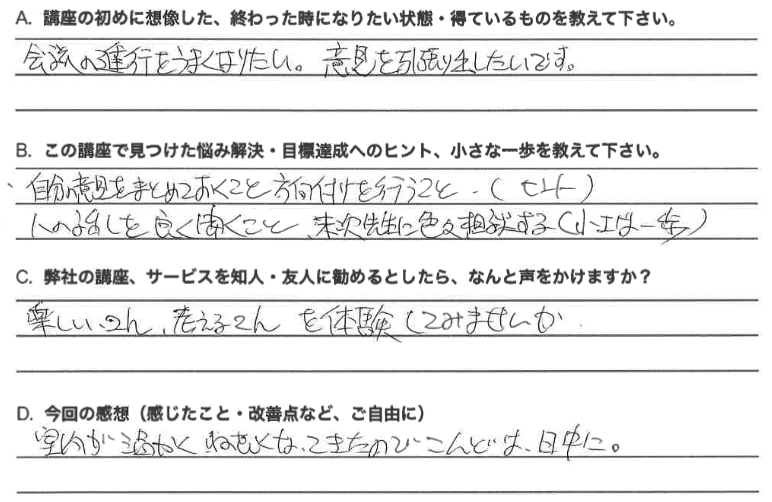 A. 講座の初めに想像した、終わった時になりたい状態・得ているものを教えて下さい。
会議の進行をうまくなりたい。意見を引張り出したいです。
B. この講座で見つけた悩み解決・目標達成へのヒント、小さな一歩を教えて下さい。
自分の意見をまとめておくこと 方向付けを行うこと・(ヒント)
人の話しを良く聞くこと 末次先生に色々相談する(小さな一歩)
C. 弊社の講座、サービスを知人・友人に勧めるとしたら、なんと声をかけますか？
楽しい 考える を体験してみませんか
D. 今回の感想（感じたこと・改善点など、ご自由に）
室内が温かく ねむくなってきたので こんどは、日中に。